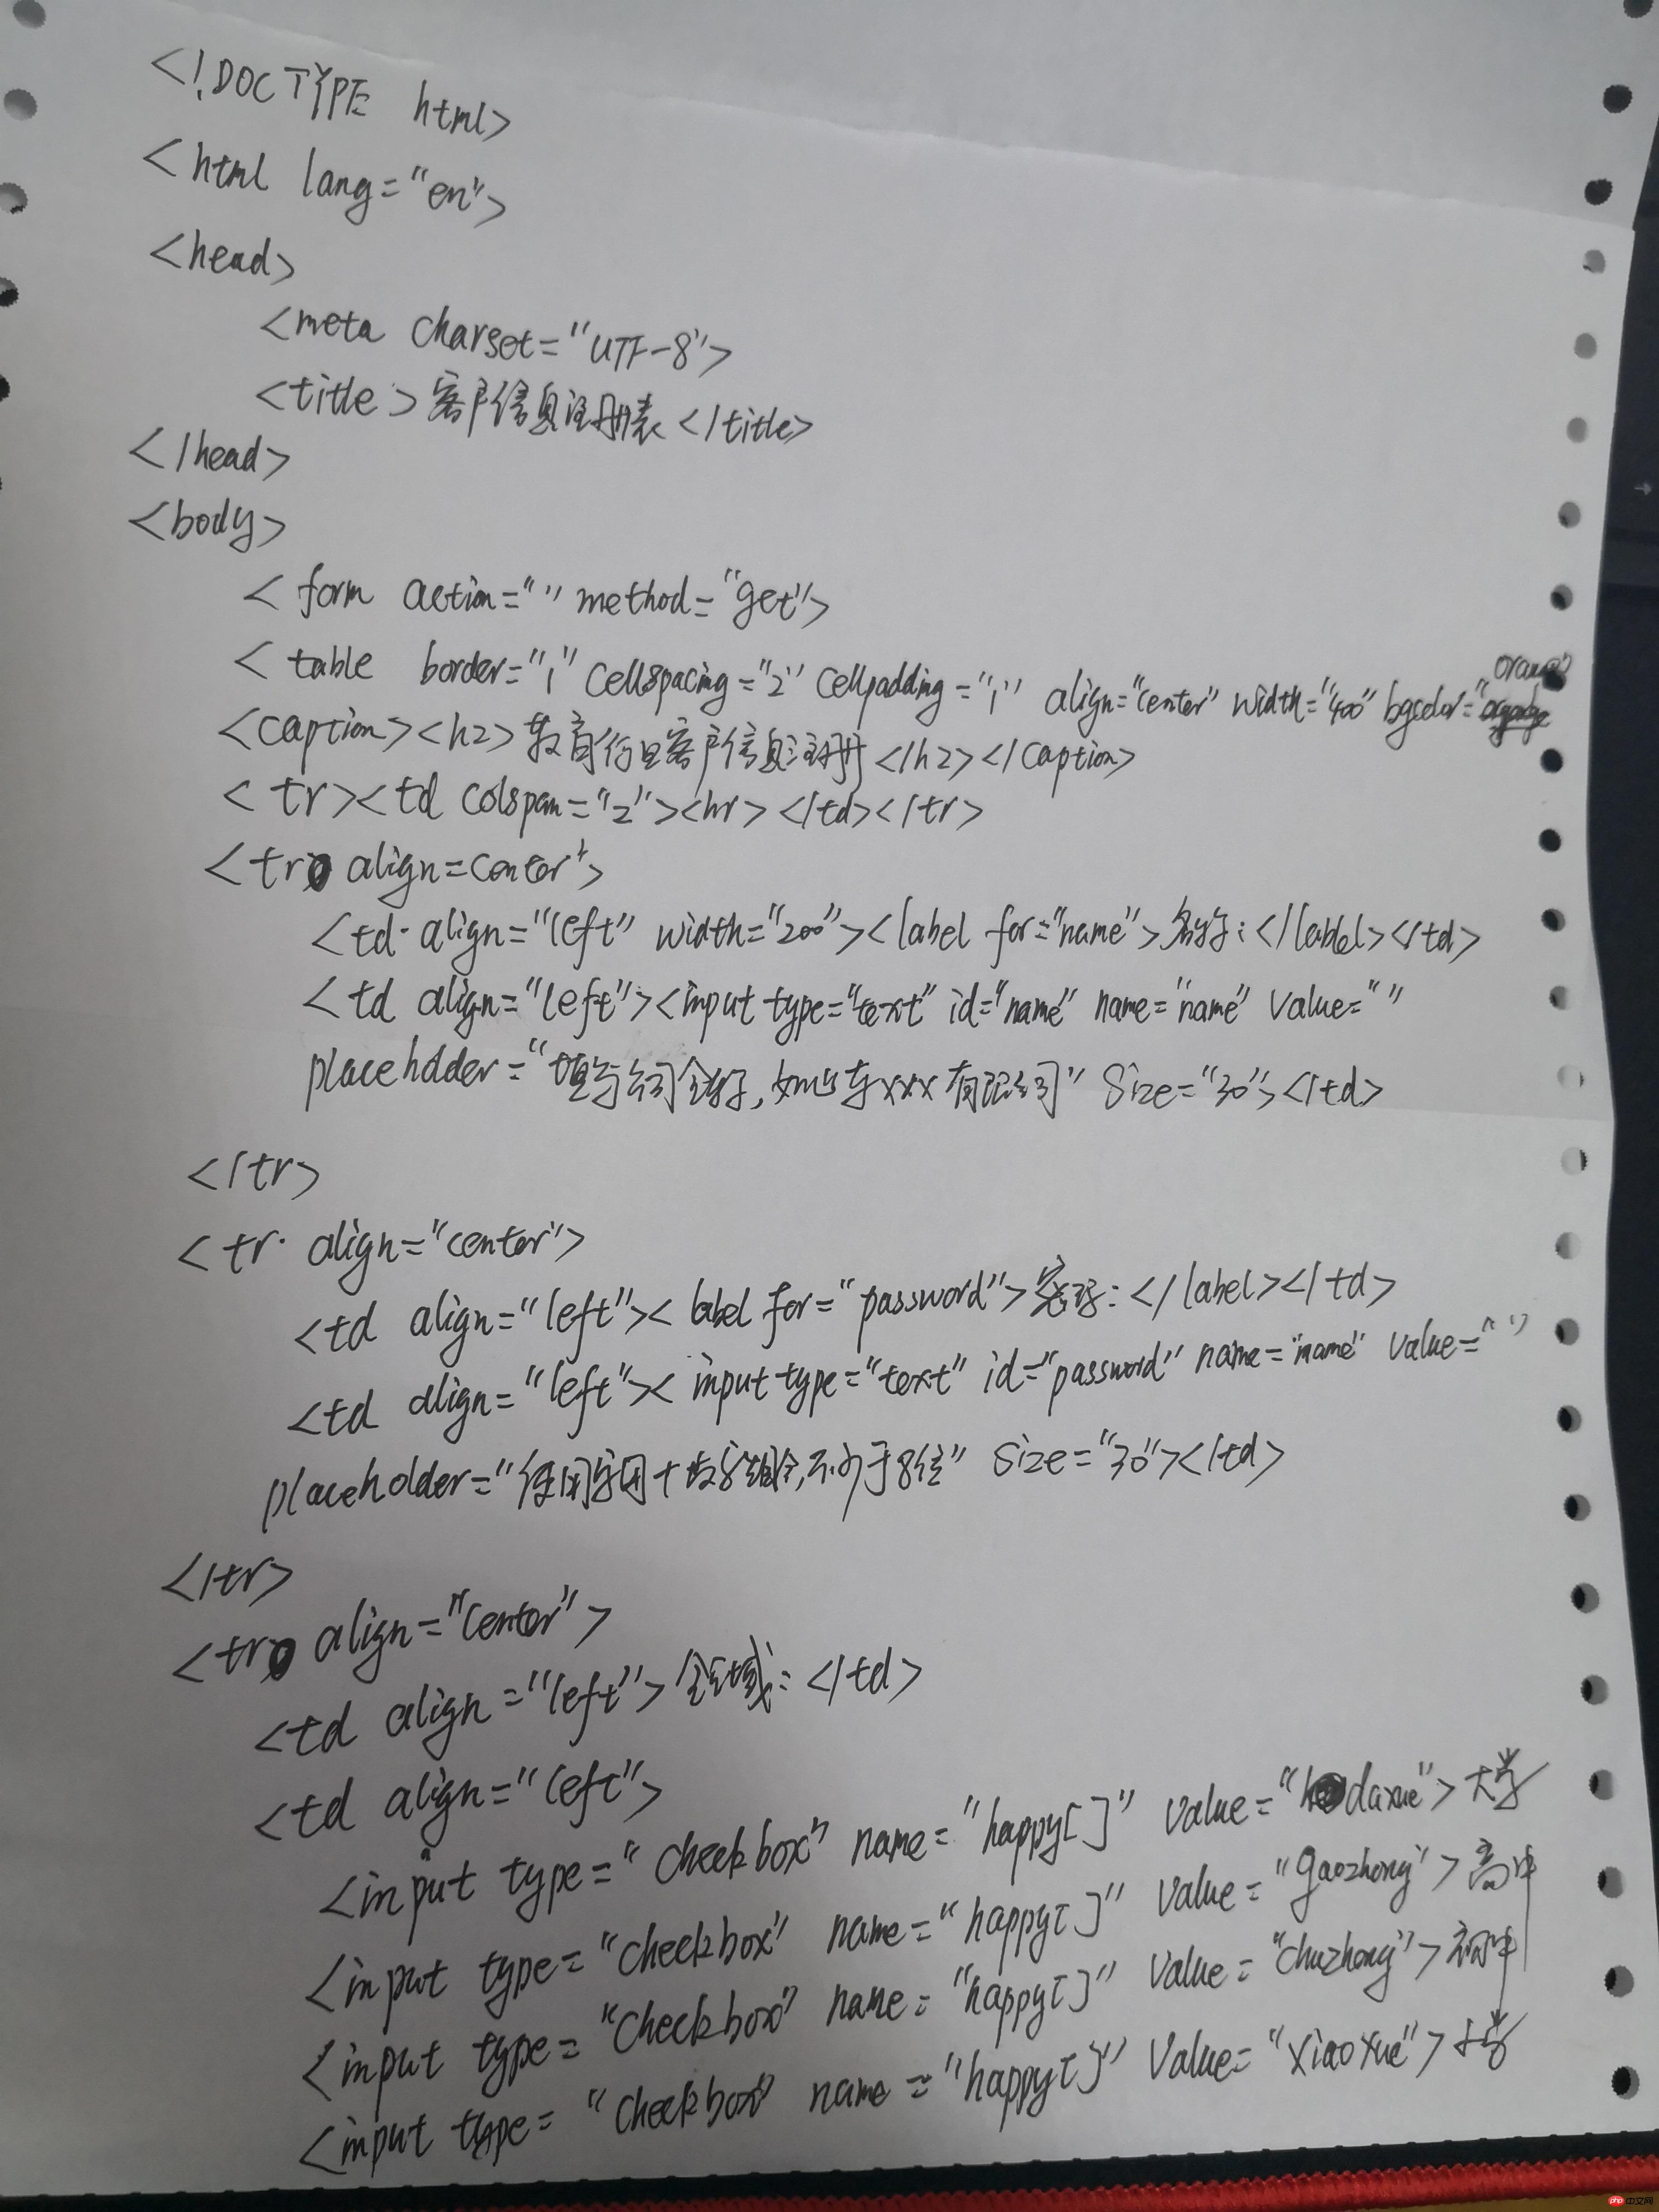 <!DOCTYPE html>
<html lang="en">
<head>
<meta charset="UTF-8">
<title>客户信息注册表</title>
</head>
<body>
<form action="" method="get">
<table border="1" cellspacing="2" cellpadding="1" align="center" width="400" bgcolor="orange"
<caption><h2>教育行业客户信息注册</h2></caption>
<tr><td colspan="2"><hr></td></tr>
<tr align=center">
<td align="left" width="200"><label for="name">名称:</label></td>
<td align="left"><input type="text" id="name" name="name" value=""
placeholder="填写公司全称,如山东xxx有限公司" size="30"></td>
</tr>
<tr align="center">
<td align="left"><label for="password">密码:</label></td>
<td align="left"><input type="text" id="password" name="name" value=""
placeholder="使用字母+数字组合,不少于8位" size="30"></td>
</tr>
<tr align="center">
<td align="left">:</td>
<td align="left">
<input type="checkbox" name="happy[]" value="daxue">大学
<input type="checkbox" name="happy[]" value="gaozhong">高中
<input type="checkbox" name="happy[]" value="chuzhong">初中
<input type="checkbox" name="happy[]" value="xiaoxue">小学
php中文网